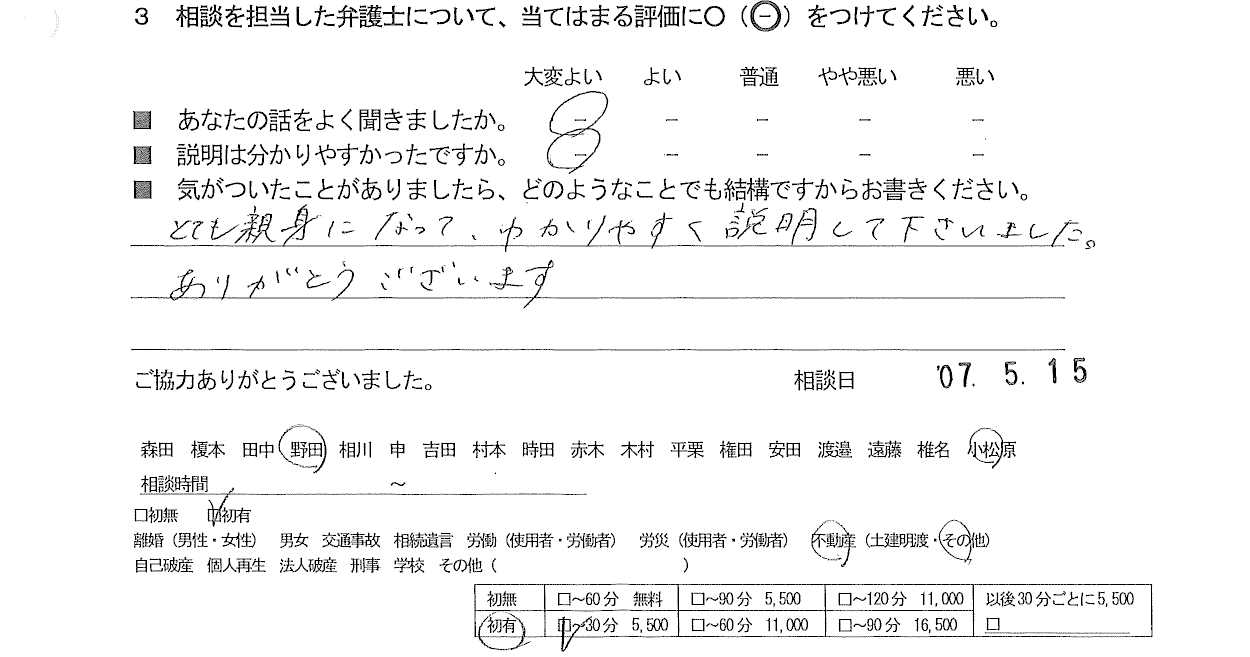 3 相談を担当した弁護士について、当てはまる評価に○（㊀）をつけてください。
大変よい よい 普通 やや悪い 悪い
■ あなたの話をよく聞きましたか。 － － － － －
■ 説明は分かりやすかったですか。 － － － － －
■ 気がついたことがありましたら、どのようなことでも結構ですからお書きください。
とても親身になって、わかりやすく説明して下さいました。
ありがとうございます
ご協力ありがとうございました。 相談日 '07. 5. 15
森田 榎本 田中 野田 相川 申 吉田 村本 時田 赤木 木村 平栗 権田 安田 渡邉 遠藤 椎名 小松原
相談時間 ～
□初無 □初有
離婚（男性・女性） 男女 交通事故 相続遺言 労働（使用者・労働者） 労災（使用者・労働者） 不動産（土建明渡・その他）
自己破産 個人再生 法人破産 刑事 学校 その他（ ）
初無 □～60分 無料 □～90分 5,500 □～120分 11,000 以後30分ごとに5,500
初有 □～30分 5,500 □～60分 11,000 □～90分 16,500 □